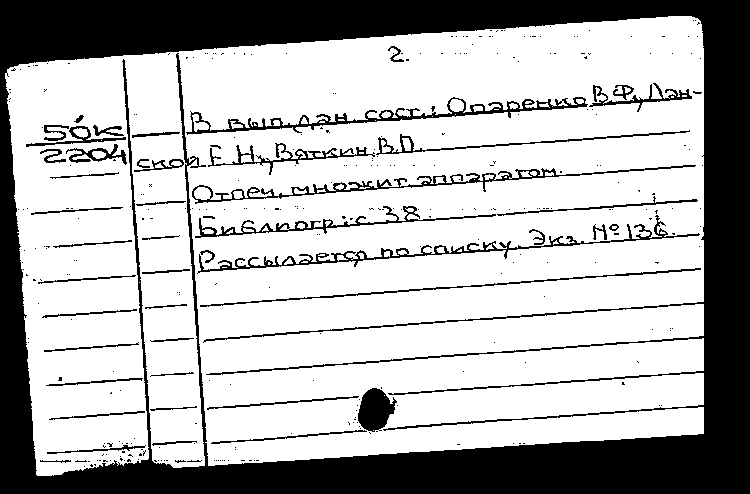 2.
50к В вып. дан. сост.: Опаренко В.Ф., Лан-
2204 ской Е.Н., Вяткин В.П.
Отпеч. множит. аппаратом.
Библиогр.: с. 38.
Рассылается по списку. Экз. № 136.